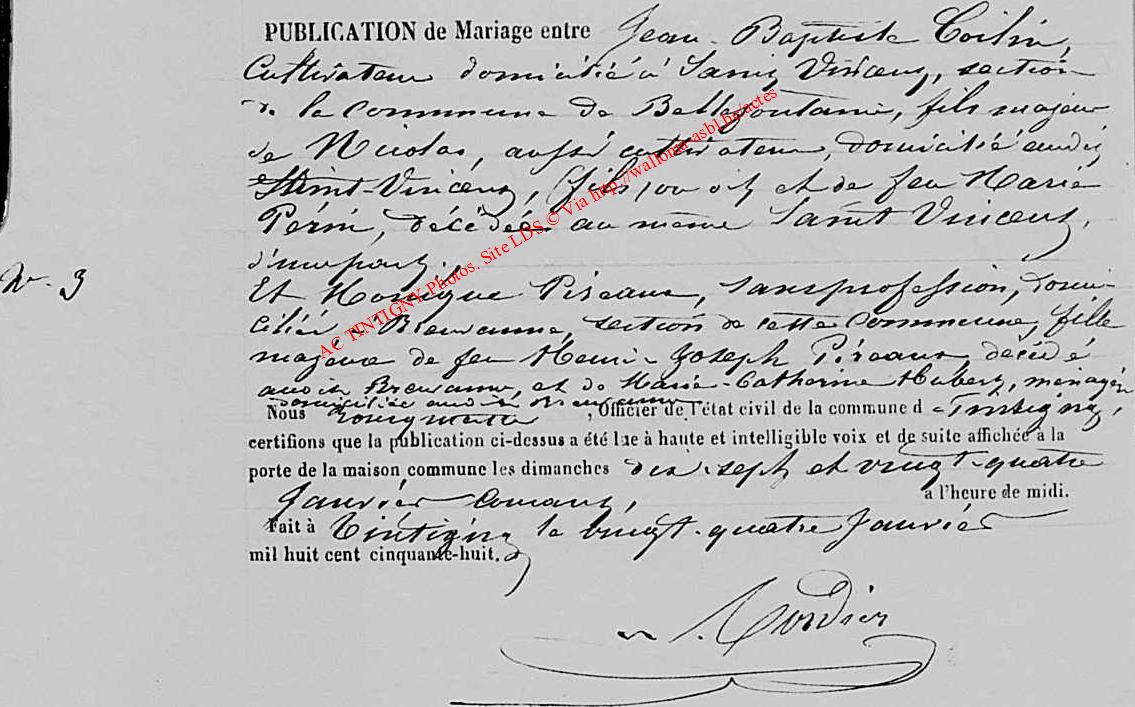 PUBLICATION de Mariage entre Jean-Baptiste Collin,
Cultivateur domicilié à Saint Vincent, section
de la commune de Bellefontaine, fils majeur
de Nicolas, aussi cultivateur, domicilié audit
Saint Vincent, et de feu Marie
Perin, décédée au même Saint Vincent,
d'une part.
N. 3
Et Monique Pireaux, sans profession, domi-
ciliée à Breuvanne, section de cette commune, fille
majeure de feu Henri-Joseph Pireaux, décédé
audit Breuvanne, et de Marie-Catherine Hubert, ménagère
domiciliée audit Breuvanne
Nous Bourgmestre, Officier de l'état civil de la commune de Tintigny,
certifions que la publication ci-dessus a été lue à haute et intelligible voix et de suite affichée à la
porte de la maison commune les dimanches dix-sept et vingt-quatre
Janvier courant, à l'heure de midi.
Fait à Tintigny le vingt-quatre Janvier
mil huit cent cinquante-huit.
AC TINTIGNY-Photos. Site LDS © Via http://wallonia-asbl.be/actes